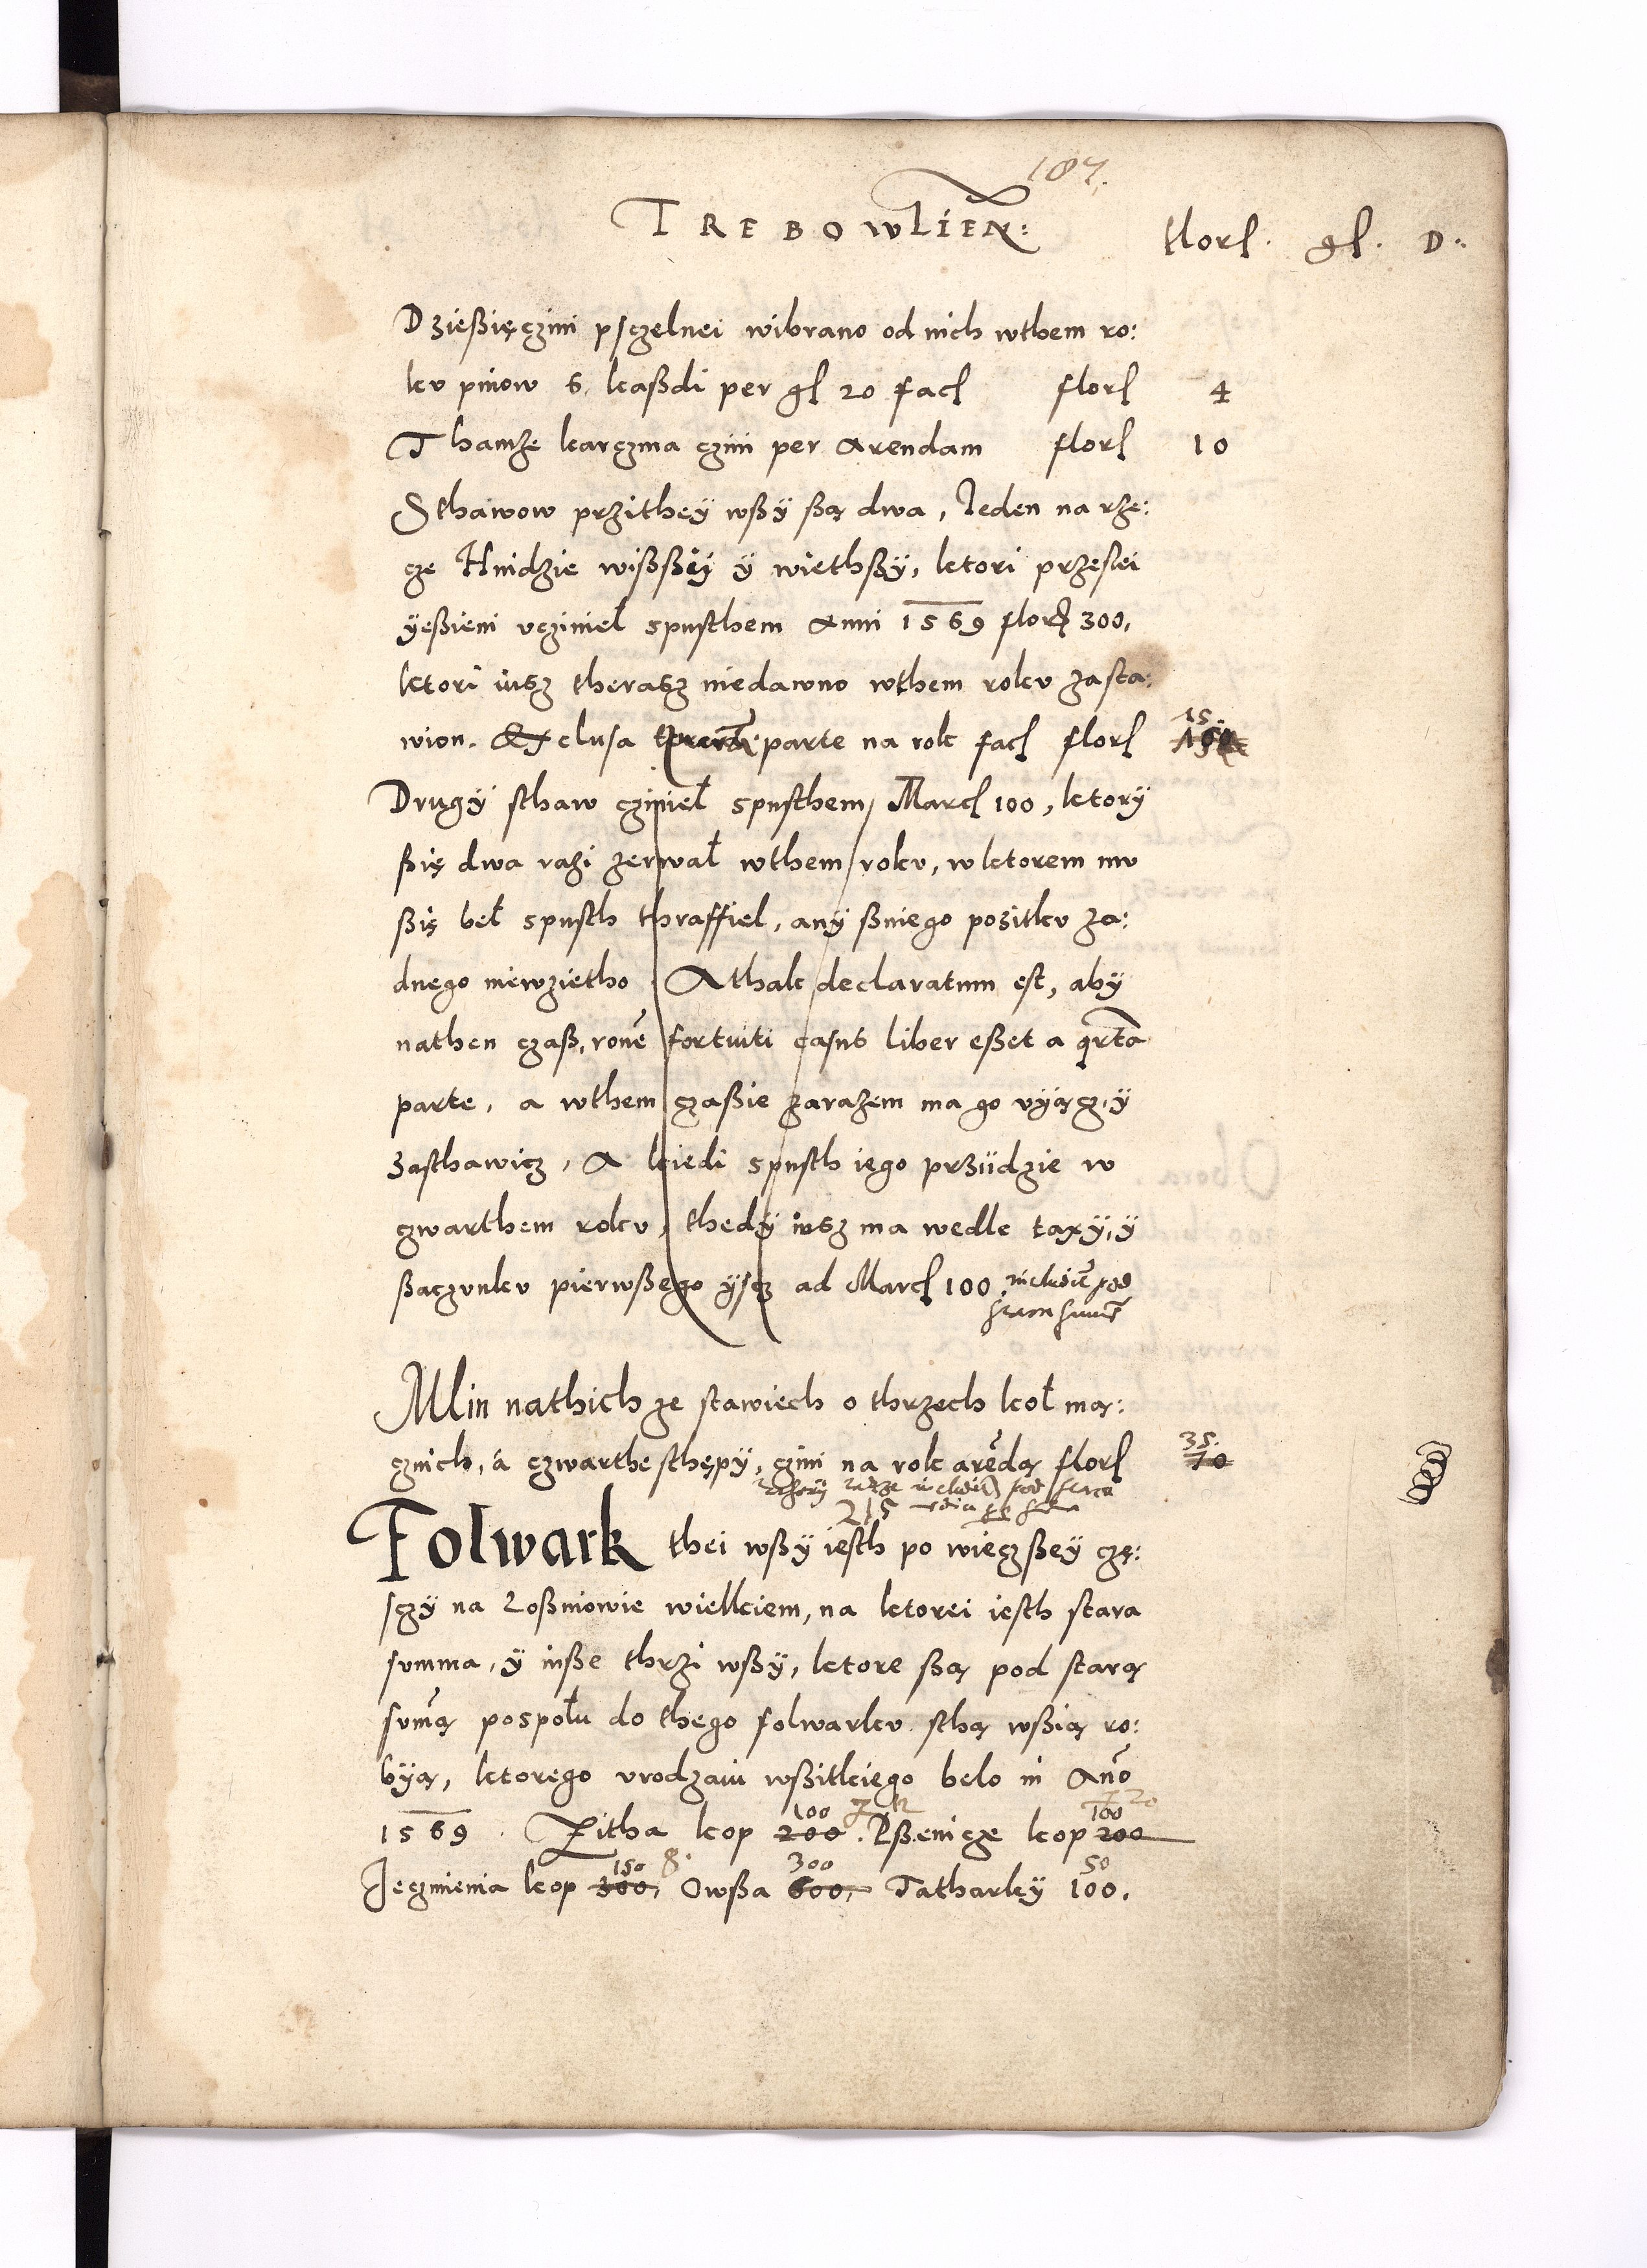 187.
TREBOWLIEN:
florꝭ. gꝭ. D:
Dzießięczini psczelnei wibrano od nich wthem ro:
kv pniow 6, kaßdi per gꝭ 20 facꝭ florꝭ 4
Thamże karczma czini per Arendam florꝭ 10
Sthawow przithey wßÿ ßą dwa, Jeden na rze:
cze Hnidzie wißßÿ ÿ wiethßÿ, ktori przeslei
ÿeßieni vcziniel spusthem Anni 1569 florꝭ 300,
ktori iusz therasz niedawno wthem rokv zasta:
wion. Exclusa parte na rok facꝭ florꝭ 15
Drugÿ sthaw cziniel spusthem Marcꝭ 100, ktorÿ
ßię dwa razi zerwał wthem rokv, w ktorem mv
ßię beł spusth thraffiel, anÿ ßniego pozitkv za:
dnego niewzietho. A thak declaratum est, aby
nathen czaß, rone fortuiti casus liber eßet a qrta
parte, a wthem czaßie zarazem ma go vÿącz, ÿ
zasthawicz, A kiedi spusth iego prziidzie w
czwarthem rokv, thedÿ iusz ma wedle taxÿ, ÿ
ßaczvnkv pierwßego ÿscz ad Marcꝭ 100, pod
Mlin nathich ze stawiech o thrzech koł mą:
cznich, a czwarthe sthępÿ, czini na rok aredą florꝭ 35. 70
215
Folwark thei wßÿ iesth po wieczßeÿ czę:
sczÿ na Loßniowie wielkiem, na ktorei iesth stara
summa, ÿ inße thrzi wßÿ, ktore ßą pod starą
sumą pospołu do thego folwarkv sthą wßią ro:
bÿą, ktorego vrodzaiu wßitkiego belo in Ano
7 12 7 20
100 100
1569. Zitha kop 200. Pßenicze kop 200
150 8. 300 50
Jęczmienia kop 300, Owßa 600, Tatharkÿ 100.